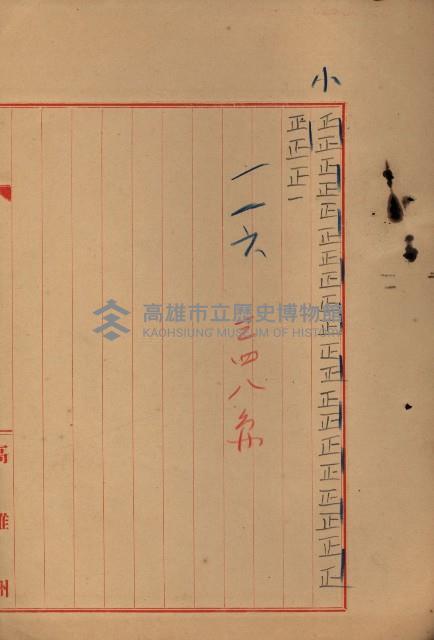 小
正正正正正正正正正正正正正正正正正正正正
正正正一
一一六
三四八
高雄州
高雄市立歷史博物館
KAOHSIUNG MUSEUM OF HISTORY